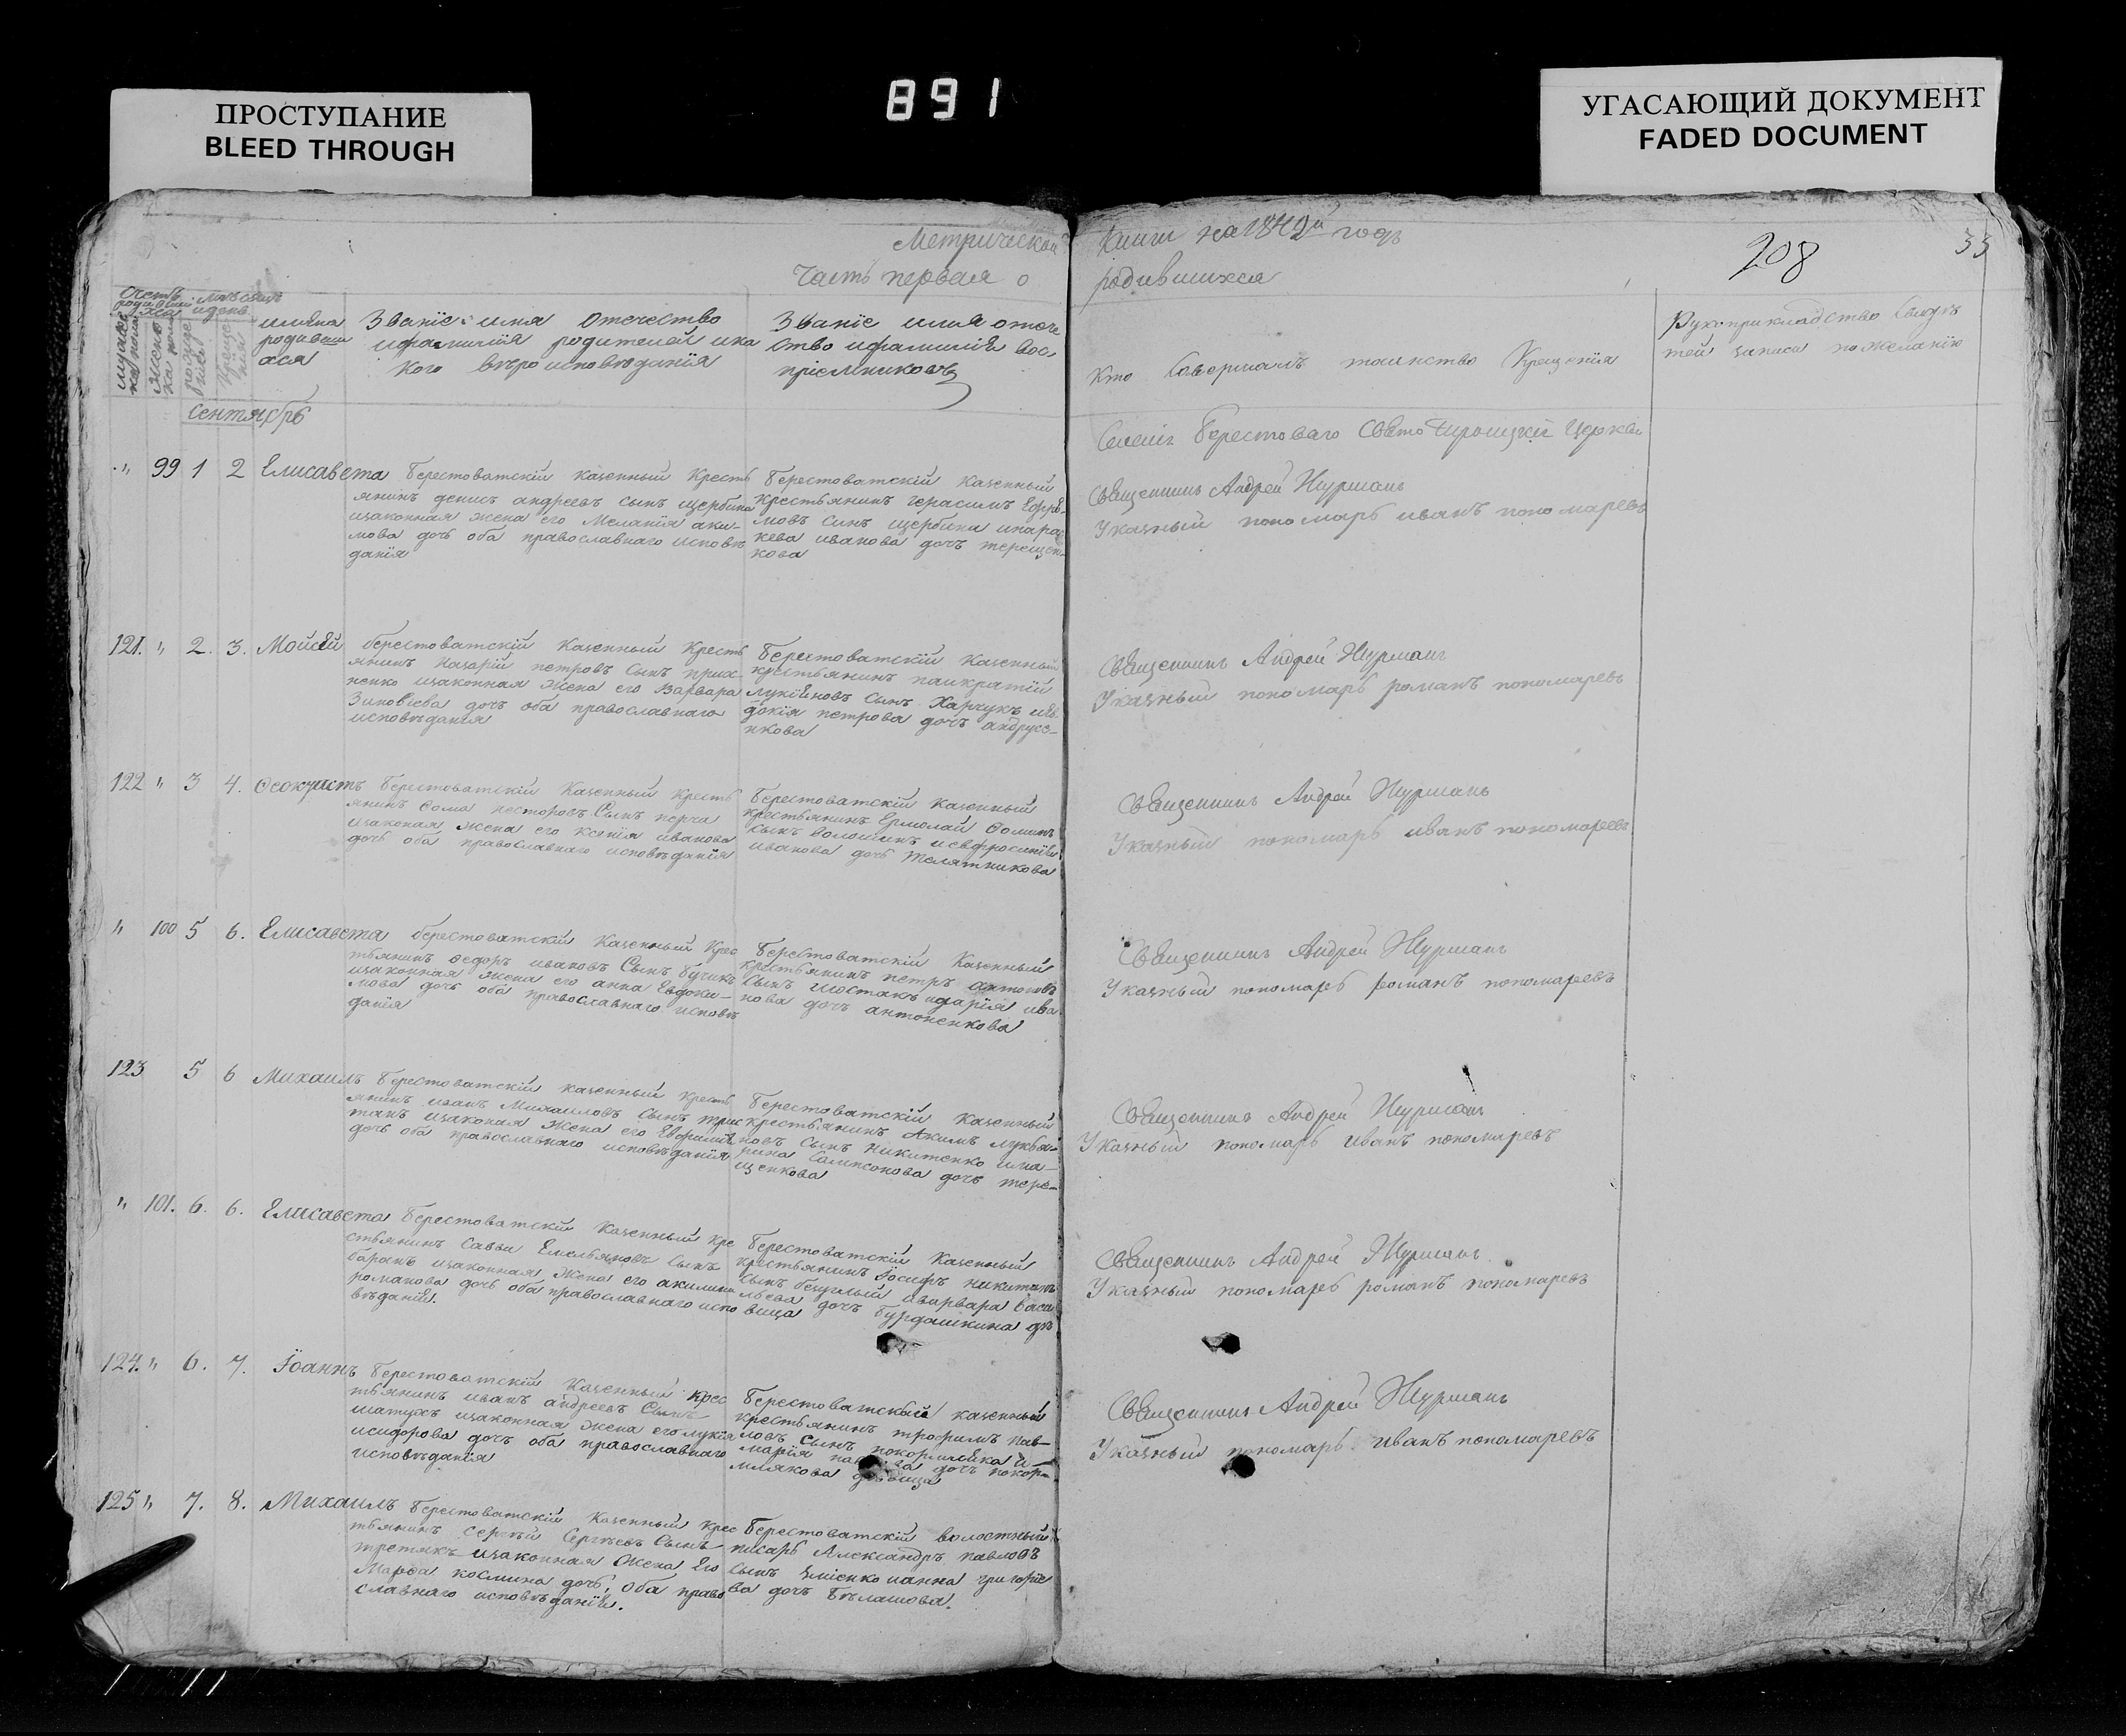 ПРОСТУПАНИЕ
BLEED THROUGH
891
УГАСАЮЩИЙ ДОКУМЕНТ
FADED DOCUMENT
Метрической
Часть первая о
Книги на 1842й годъ
родившихся
208
33
Счетъ родившихся
мѣсяцъ и день
имяна
родивши
хся
Званіе имя отечество
ифамилія родителей ика
кого вѣроисповѣданія
Званіе имя отече
ство ифамилія вос
пріемниковъ
Кто Совершалъ таинство Крещенія
Рукоприкладство Свидѣ
телей записи пожеланію
Сентябрь
Селенія Берестоваго Свято Троицкія Церкви
" 99 1 2 Елисавета
Берестоватскій казенный Кресть
янинъ денисъ андреевъ сынъ щербина
изаконная жена его Меланія аки-
мова дочь оба православнаго исповѣ
данія
Берестоватскій казенный
Крестьянинъ герасимъ Ефре-
мовъ Сынъ щербина ипарас
кева иванова дочь терещен-
кова
Священникъ Андрей Журманъ
Указный пономарь иванъ пономаревъ
121. " 2. 3. Мойсей
берестоватскій Казенный Кресть
янинъ Назарій петровъ Сынъ прих-
ненко изаконная жена его Варвара
Зиновіева дочь оба православнаго
исповѣданія
Берестоватскій Казенный
крестьянинъ панкратій
лукіяновъ Сынъ Харчукъ иев
докія петрова дочь андрусе-
нкова
Священникъ Андрей Журманъ
Указный пономарь романъ пономаревъ
122 " 3 4. Ѳеоктистъ
Берестоватскій Казенный Кресть
янинъ Ѳома несторовъ Сынъ перча
изаконая жена его Ксенія иванова
дочь оба православнаго исповѣданія
Берестоватскій Казенный
крестьянинъ Ермолай Ѳоминъ
Сынъ Волошинъ иевфросинія
иванова дочь Телятникова
Священникъ Андрей Журманъ
Указный пономарь иванъ пономаревъ
" 100 5 6. Елисавета
берестоватскій Казенный Крес
тьянинъ Ѳедоръ ивановъ Сынъ Бучикъ
изаконная жена его анна Евдоки-
мова дочь оба православнаго исповѣ
данія
Берестоватскій Казенный
крестьянинъ петръ антоновъ
Сынъ Шостакъ идарія ива
нова дочь антоненкова
Священникъ Андрей Журманъ
Указный пономарь романъ пономаревъ
123 5 6 Михаилъ
Берестоватскій казенный Кресть
янинъ иванъ Михаиловъ Сынъ
изаконая жена его
дочь оба православнаго исповѣданія
Берестоватскій Казенный
крестьянинъ Акимъ лукья-
новъ Сынъ Никитенко има-
рина Самисонова дочь тере-
щенкова
Священникъ Андрей Журманъ
Указный пономарь иванъ пономаревъ
" 101. 6. 6. Елисавета
Берестоватскій Казенный Кре
стьянинъ Савва Емельяновъ Сынъ
баранъ изаконная жена его акилина
романова дочь оба православнаго испо
вѣданія.
Берестоватскій Казенный
крестьянинъ Іосифъ никитинъ
Сынъ беуглый иварвара Васи
льева дочь Бурдашкина дѣ
вица
Священникъ Андрей Журманъ
Указный пономарь романъ пономаревъ
124. " 6. 7. Іоаннъ
Берестоватскій Казенный Крес
тьянинъ иванъ андреевъ Сынъ
шатухъ изаконная жена его лукія
исидорова дочь оба православнаго
исповѣданія
Берестоватскый казенный
крестьянинъ трофимъ пав-
ловъ Сынъ и
марія дочь
дѣвица
Священникъ Андрей Журманъ
Указный пономарь иванъ пономаревъ
125 " 7. 8. Михаилъ
Берестоватскій Казенный Крес
тьянинъ сергѣй Сергѣевъ Сынъ
третякъ изаконная жена Его
Марѳа космина дочь, оба право
славнаго исповѣданія.
Берестоватскій волостный
писарь Александръ павловъ
Сынъ ианна григоріе
ва дочь Бѣлашова.